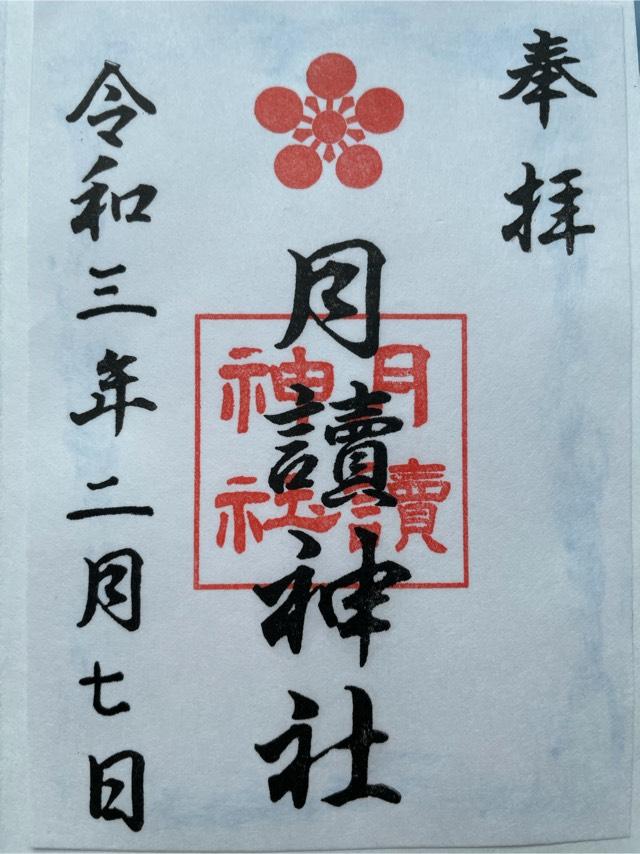 奉拝
月讀神社
月讀
神社
令和三年二月七日